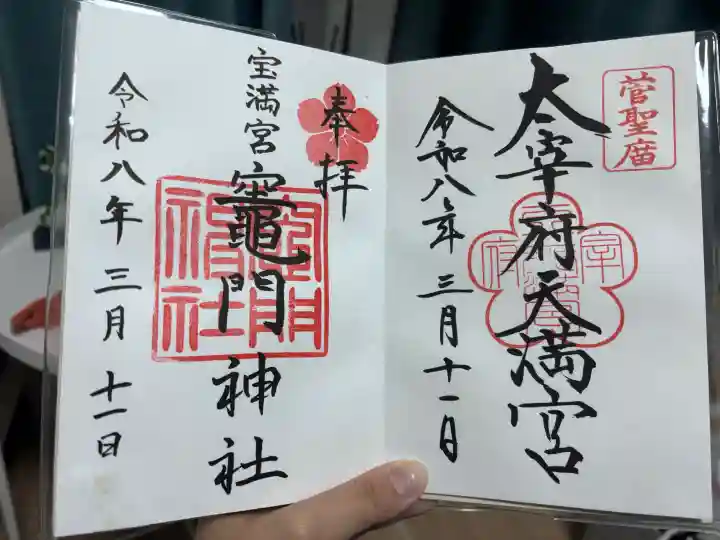 菅聖庿
太宰府天満宮
令和八年三月十一日
奉拝
宝満宮
竈門神社
令和八年三月十一日